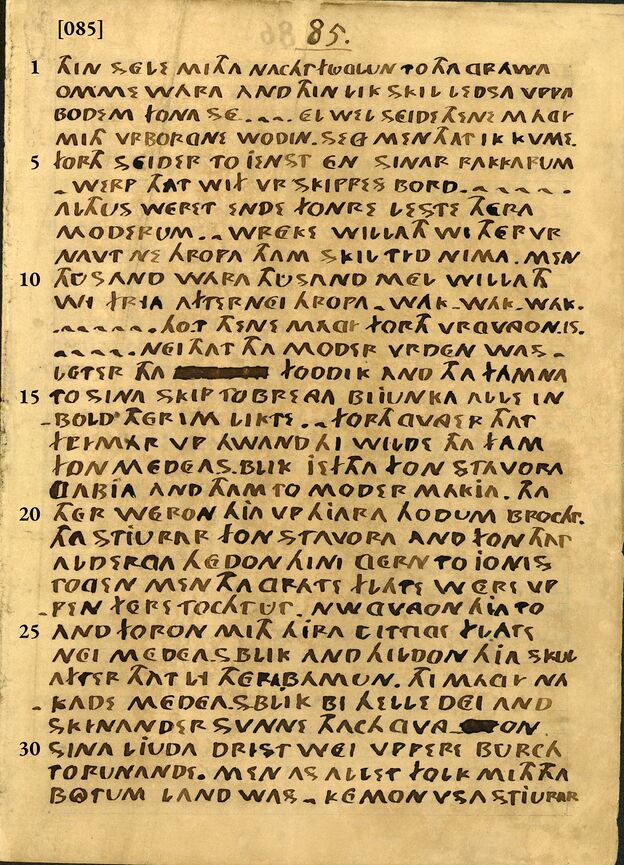 THIN SELE MITHA NACHT FWGLUN TO THA GRAWA
OMME WARA AND THIN LIK SKIL LEDSA UPPA
BODEM FONA SE.... EL WEL SEIDE THENE MAGI
MITH URBORGNE WODIN. SEG MEN THAT IK KVME.
FORTH SEIDER TO IENST EN SINAR RAKKARUM
WERP THAT WIF UR SKIPPES BORD.
ALTHUS WERET ENDE FONRE LESTE THERA
MODERUM.. WREKE WILLATH WI THER UR
NAVT NE HROPA THAM SKIL TID NIMA. MEN
THUSAND WARA THUSAND MEL WILLATH
WI FRIA AFTERNEI HROPA. WAK. WAK. WAK.
HOT THENE MAGI FORTH URGVNGON IS.
NEI THAT THA MODER URDEN WAS.
LETER THA FODDIK AND THA FAMNA
TO SINA SKIP TOBRENGA BIJUNKA ALLE IN
BOLD THER IM LIKTE.. FORTH GVNG ER THAT
FLIMAR UP HWAND HI WILDE THA FAM
FON MEDEASBLIK IEFTHA FON STAVORA
GABIA AND THAM TO MODER MAKIA. THA
THER WERON HIA UP HIARA HODUM BROCHT.
THA STIURAR FON STAVORA AND FON THAT
ALDERGA HEDON HINI GERN TO IONIS
TOGEN MEN THA GRATE FLATE WERE UP
PEN FERE TOCHT UT. NW GVNGON HIA TO
AND FORON MITH HIRA LITTIGE FLATE
NEI MEDEASBLIK AND HILDON HIA SKUL
AFTER THAT LI THERA BAMUN. THI MAGI NA
KADE MEDEASBLIK BI HELLE DEI AND
SKINANDER SUNNE THACH GVNGON
SINA LIUDA DRIST WEI UPPERE BURCH
TO RUNANDE. MEN AS ALLET FOLK MITHTHA
BOTUM LAND WAS. KEMON USA STIURAR
[085]
85.
1
5
10
15
20
25
30